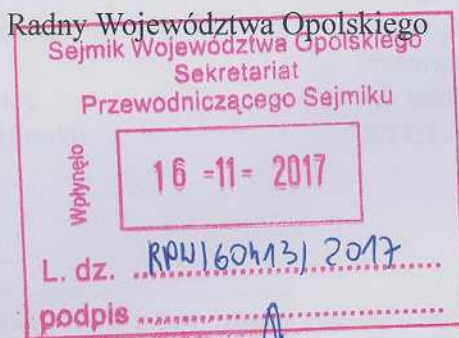 Radny Województwa Opolskiego
Sejmik Województwa Opolskiego
Sekretariat
Przewodniczącego Sejmiku
Wpłynęło
16 -11- 2017
L. dz. RPW/60413/2017
podpis